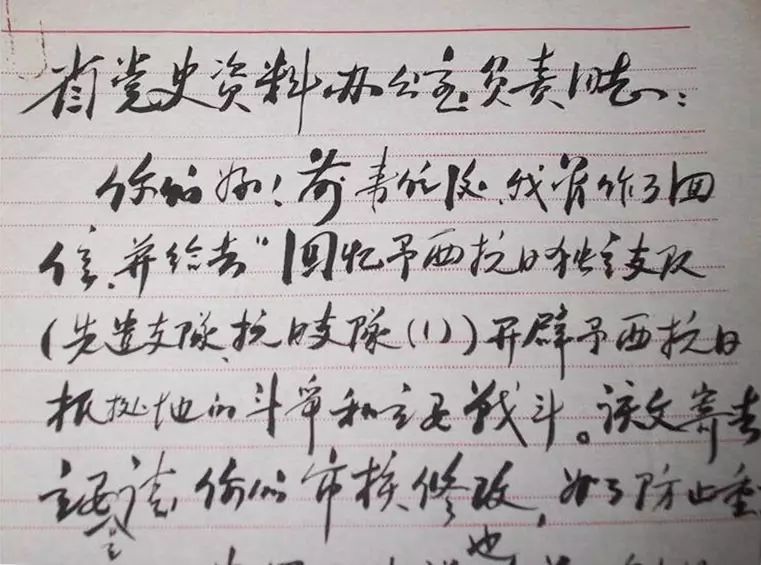 省党史资料办公室负责同志:
你们好!前 我曾作了回
信,并给去“回忆予西抗日独立支队
(先遣支隊、抗日支隊(1))开辟予西抗日
根据地的斗爭和主要战斗。该文寄去
主要是请你们审核、修改,为了防止重
也